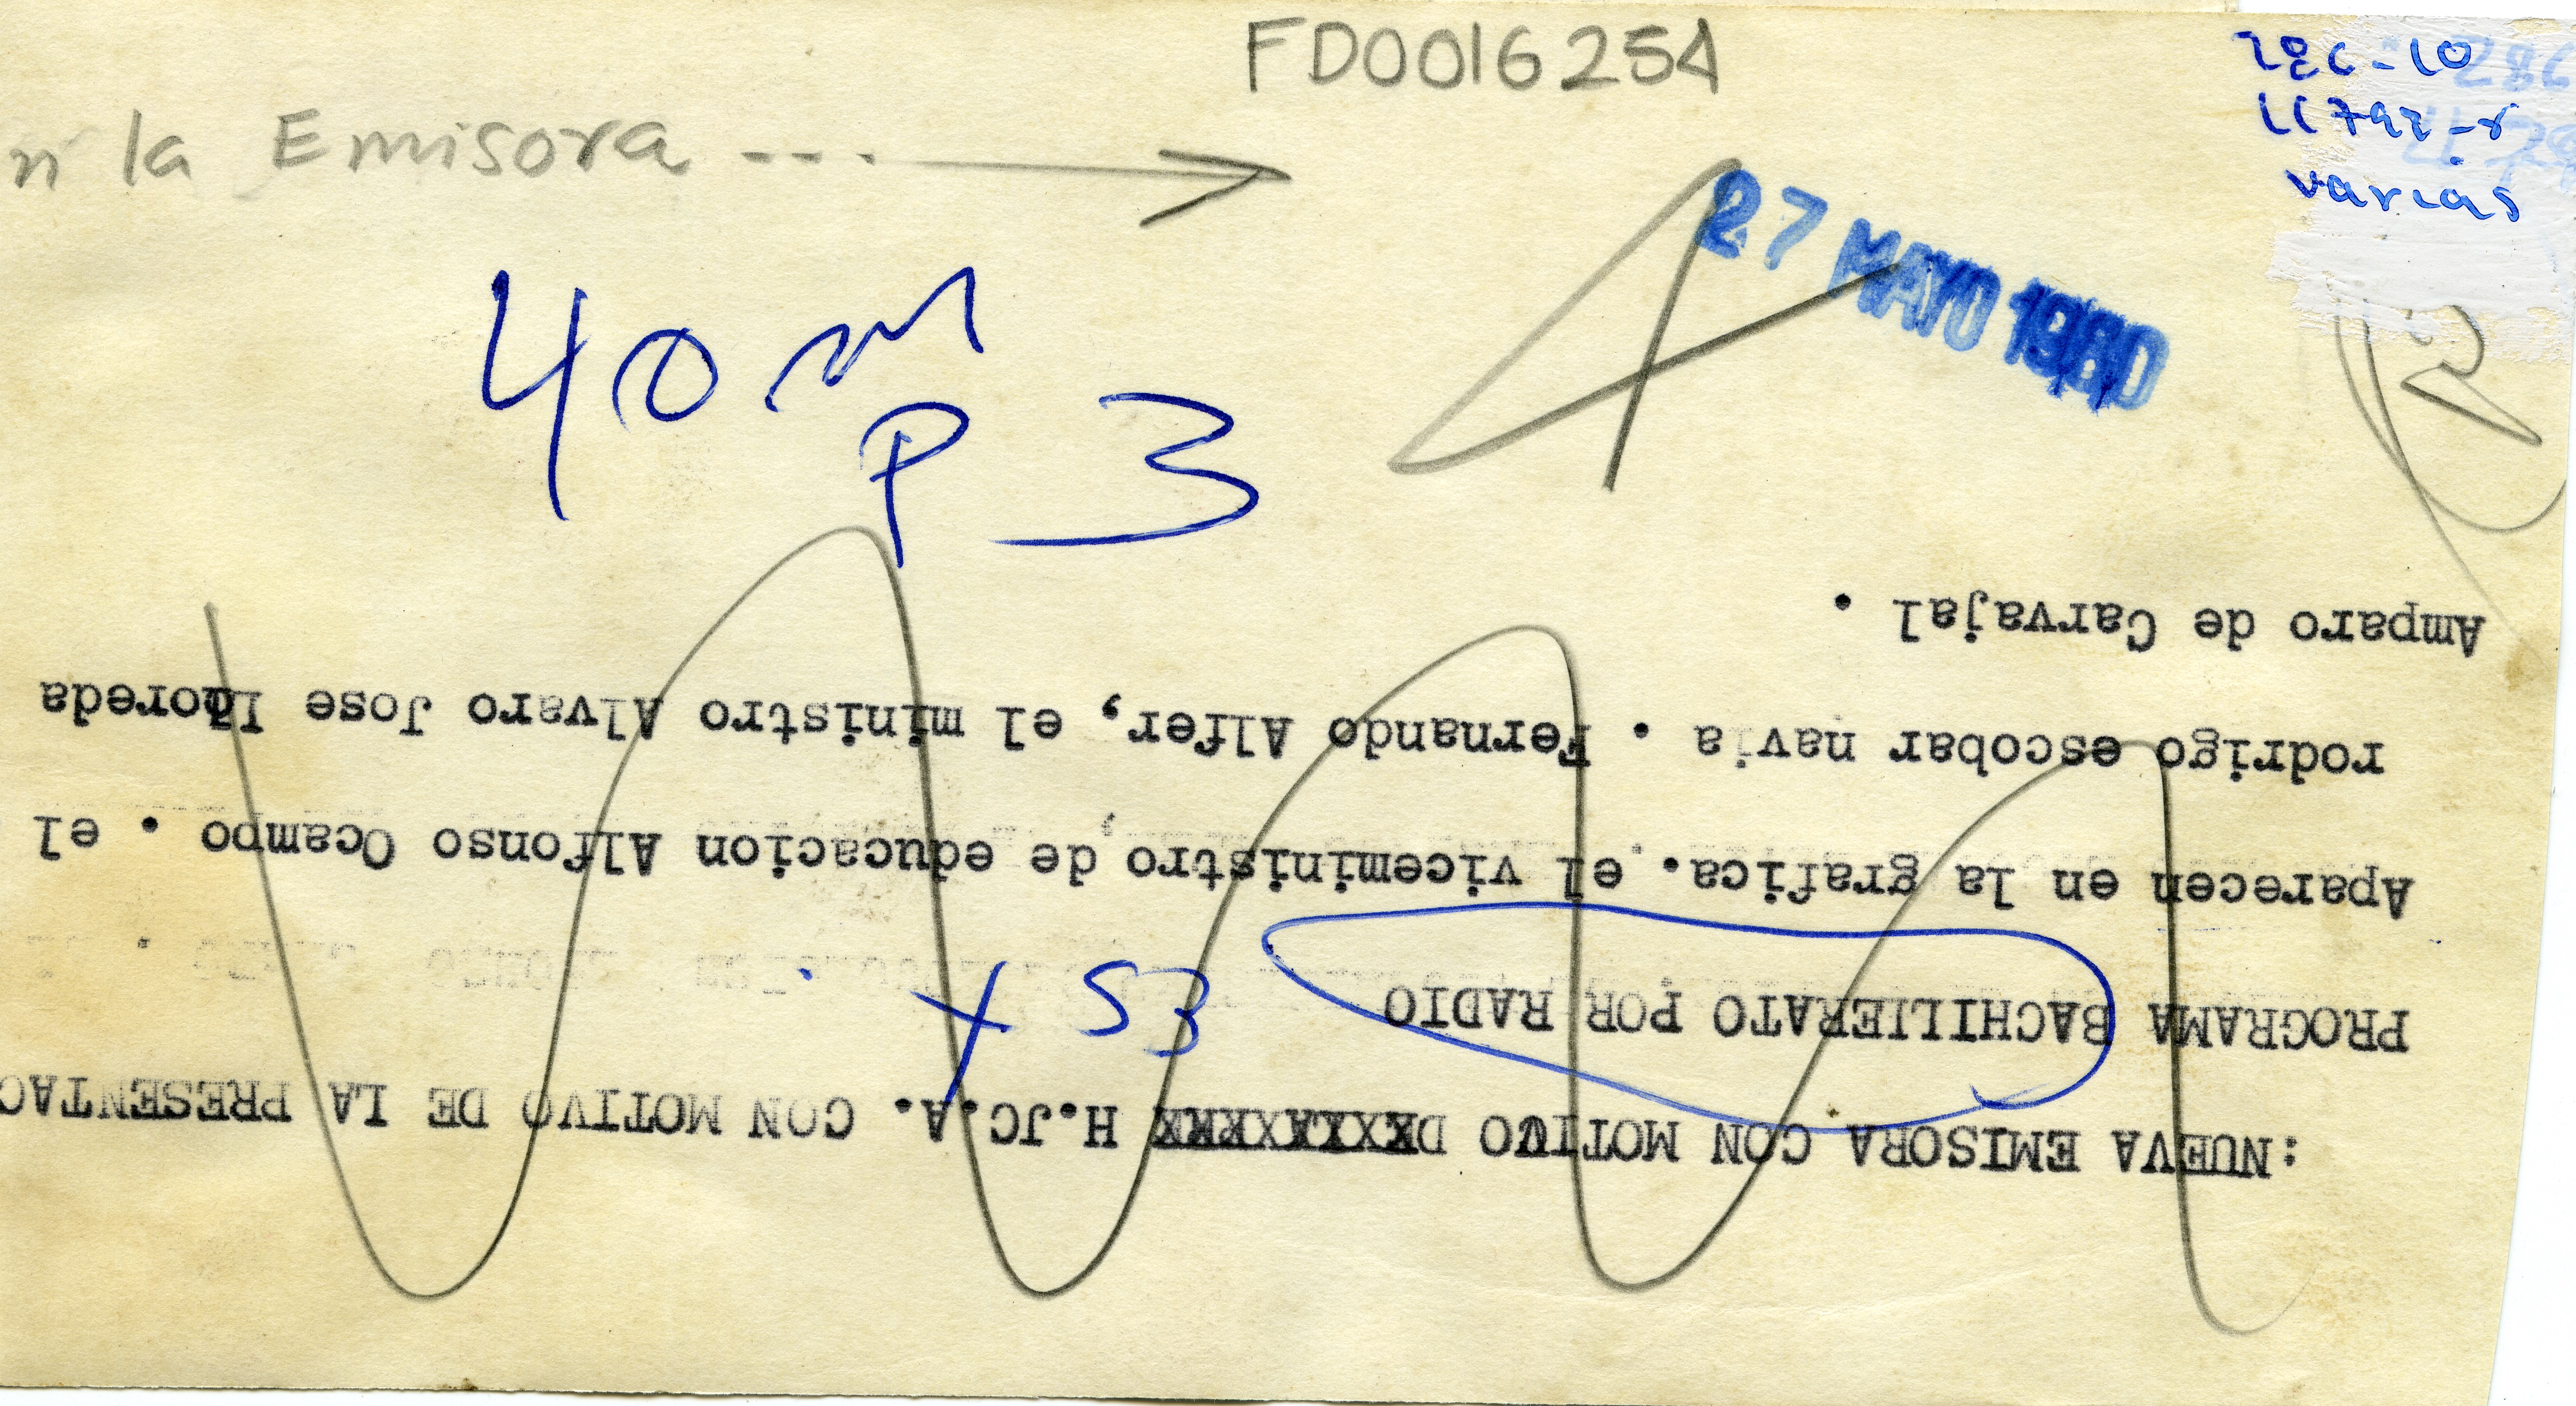 FD0016254
la Emisora ... →
27 MAYO 1980
varias
40 m
P 3
:NUEVA EMISORA CON MOTIVO DXXXLAXXRXX H.JC.A. CON MOTIVO DE LA PRESENTAC
PROGRAMA BACHILIERATO POR RADIO
X 53
Aparecen en la grafica. el viceministro de educacion Alfonso Ocampo . el
rodrigo escobar navia . Fernando Alfer, el ministro Alvaro Jose Lloreda
Amparo de Carvajal .